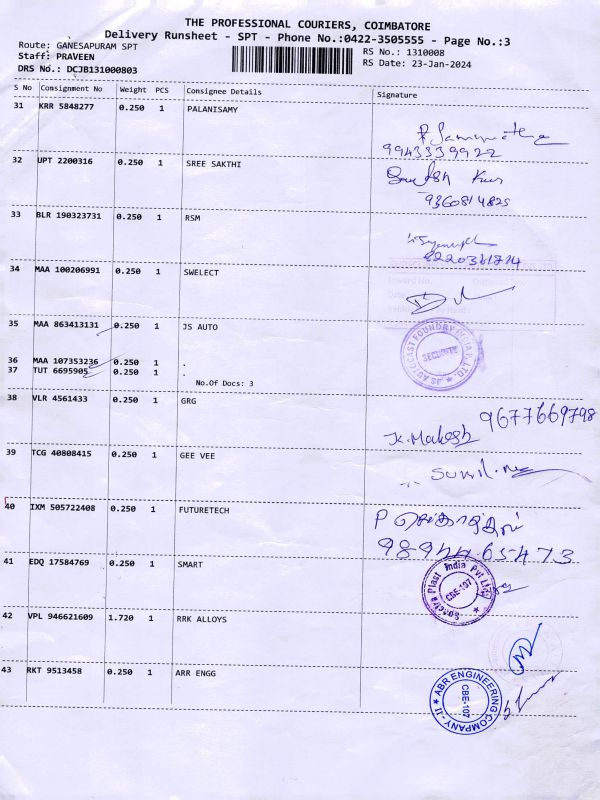 THE PROFESSIONAL COURIERS, COIMBATORE
Delivery Runsheet - SPT - Phone No.:0422-3505555 - Page No.:3
Route: GANESAPURAM SPT
RS No.: 1310008
Staff: PRAVEEN
RS Date: 23-Jan-2024
DRS No.: DCJB131000803
S No Consignment No Weight PCS Consignee Details Signature
31 KRR 5848277 0.250 1 PALANISAMY
9943339922
32 UPT 2200316 0.250 1 SREE SAKTHI
9360814825
33 BLR 190323731 0.250 1 RSM
8220361714
34 MAA 100206991 0.250 1 SWELECT
35 MAA 863413131 0.250 1 JS AUTO
JS AUTOCAST FOUNDRY INDIA P. LTD.
SECURITY
36 MAA 107353236 0.250 1 .
37 TUT 6695905 0.250 1 .
No.Of Docs: 3
38 VLR 4561433 0.250 1 GRG
9677669798
K. Makesh
39 TCG 40808415 0.250 1 GEE VEE
40 IXM 505722408 0.250 1 FUTURETECH
98944 65473
41 EDQ 17584769 0.250 1 SMART
Plast India Pvt Ltd
CBE-107
42 VPL 946621609 1.720 1 RRK ALLOYS
43 RKT 9513458 0.250 1 ARR ENGG
ABR ENGINEERING COMPANY - II
CBE-107